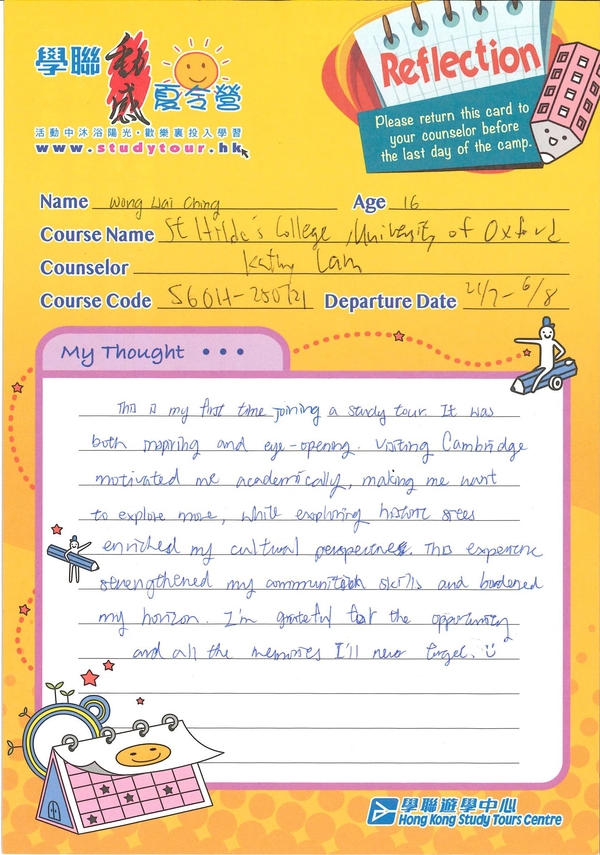 學聯 動感 夏令營
活動中沐浴陽光・歡樂裏投入學習
www.studytour.hk
Reflection
Please return this card to
your counselor before
the last day of the camp.
Name Wong Wai Ching Age 16
Course Name St Hilda's College, University of Oxford
Counselor Kathy Lam
Course Code Departure Date 21/7 - 6/8
My Thought • • •
This is my first time joining a study tour. It was
both inspiring and eye-opening. Visiting Cambridge
motivated me academically, making me want
to explore more, while exploring historic sites
enriched my cultural perspectives. This experience
strengthened my skills and
my horizon. I'm grateful for the opportunity
and all the memories I'll never forget.
學聯遊學中心
Hong Kong Study Tours Centre